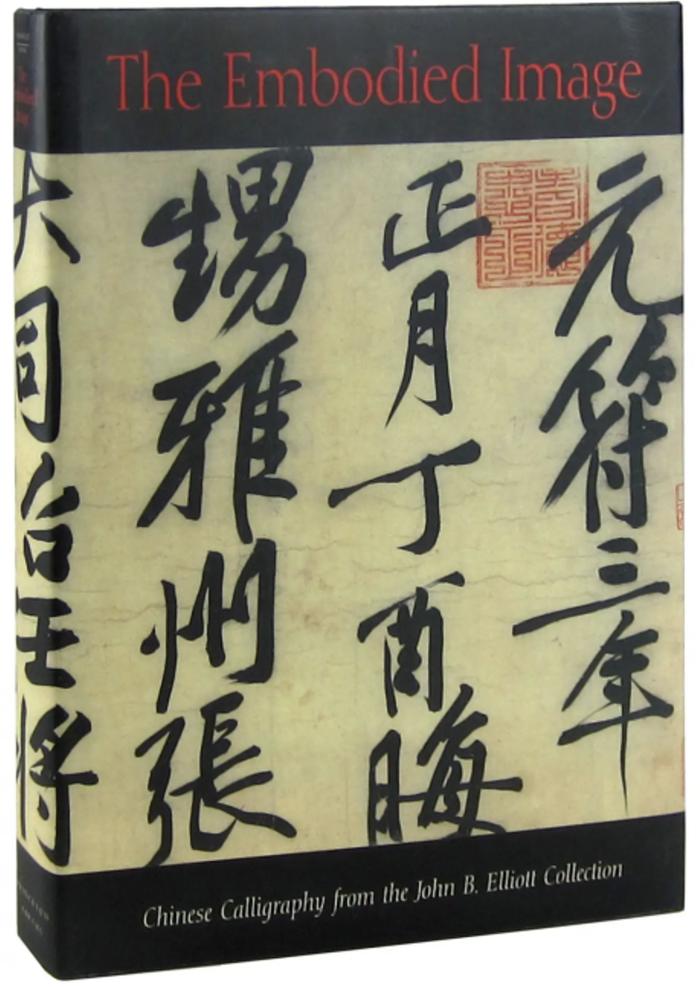 The Embodied Image
元符三年
正月丁酉晦
甥雅州張
大同治任將
Chinese Calligraphy from the John B. Elliott Collection
The
Embodied
Image